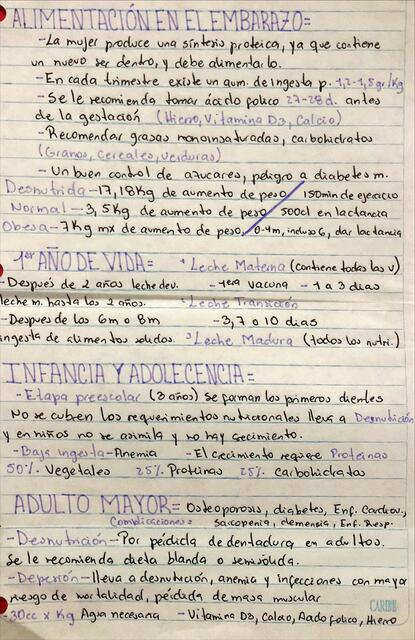 ALIMENTACIÓN EN EL EMBARAZO=
-La mujer produce una síntesis proteica, ya que contiene
un nuevo ser dentro, y debe alimentarlo.
-En cada trimestre existe un aum. de ingesta p. 1,2-1,5gr/Kg
-Se le recomienda tomar ácido folico 27-28d. antes
de la gestación (Hierro, Vitamina D3, Calcio)
-Recomendar grasas monoinsaturadas, carbohidratos
(Granos, Cereales, verduras)
-Un buen control de azucares, peligro a diabetes m.
Desnutrida-17,18Kg de aumento de peso / 150min de ejercicio
Normal-3,5Kg de aumento de peso / 500cl en lactancia
Obesa-7Kg mx de aumento de peso / 0-4m, incluso 6, dar lactancia
1er AÑO DE VIDA= Leche Materna (contiene todas las v)
-Después de 2 años leche dev. -1era vacuna -1 a 3 dias
leche m. hasta los 2 años. Leche Transición
-Despues de los 6m o 8m -3,7 o 10 dias
ingesta de alimentos solidos. Leche Madura (todos los nutri.)
INFANCIA Y ADOLECENCIA=
-Etapa preescolar (3 años) se forman los primeros dientes
No se cubren los requerimientos nutricionales lleva a Desnutrición
y en niños no se asimila y no hay crecimiento.
-Baja ingesta-Anemia -El crecimiento requiere Proteinas
50% Vegetales 25% Proteinas 25% Carbohidratos
ADULTO MAYOR= Osteoporosis, diabetes, Enf. Cardiov.,
Complicaciones= Sarcopenia, demensia, Enf. Resp.
-Desnutrición-Por pédida de dentadura en adultos.
Se le recomienda dieta blanda o semisolida.
-Depresión-lleva a desnutrición, anemia y infecciones con mayor
riesgo de mortalidad, pédida de masa muscular
-30cc x Kg Agua necesaria -Vitamina D3, Calcio, Acido folico, Hierro
CARIBE